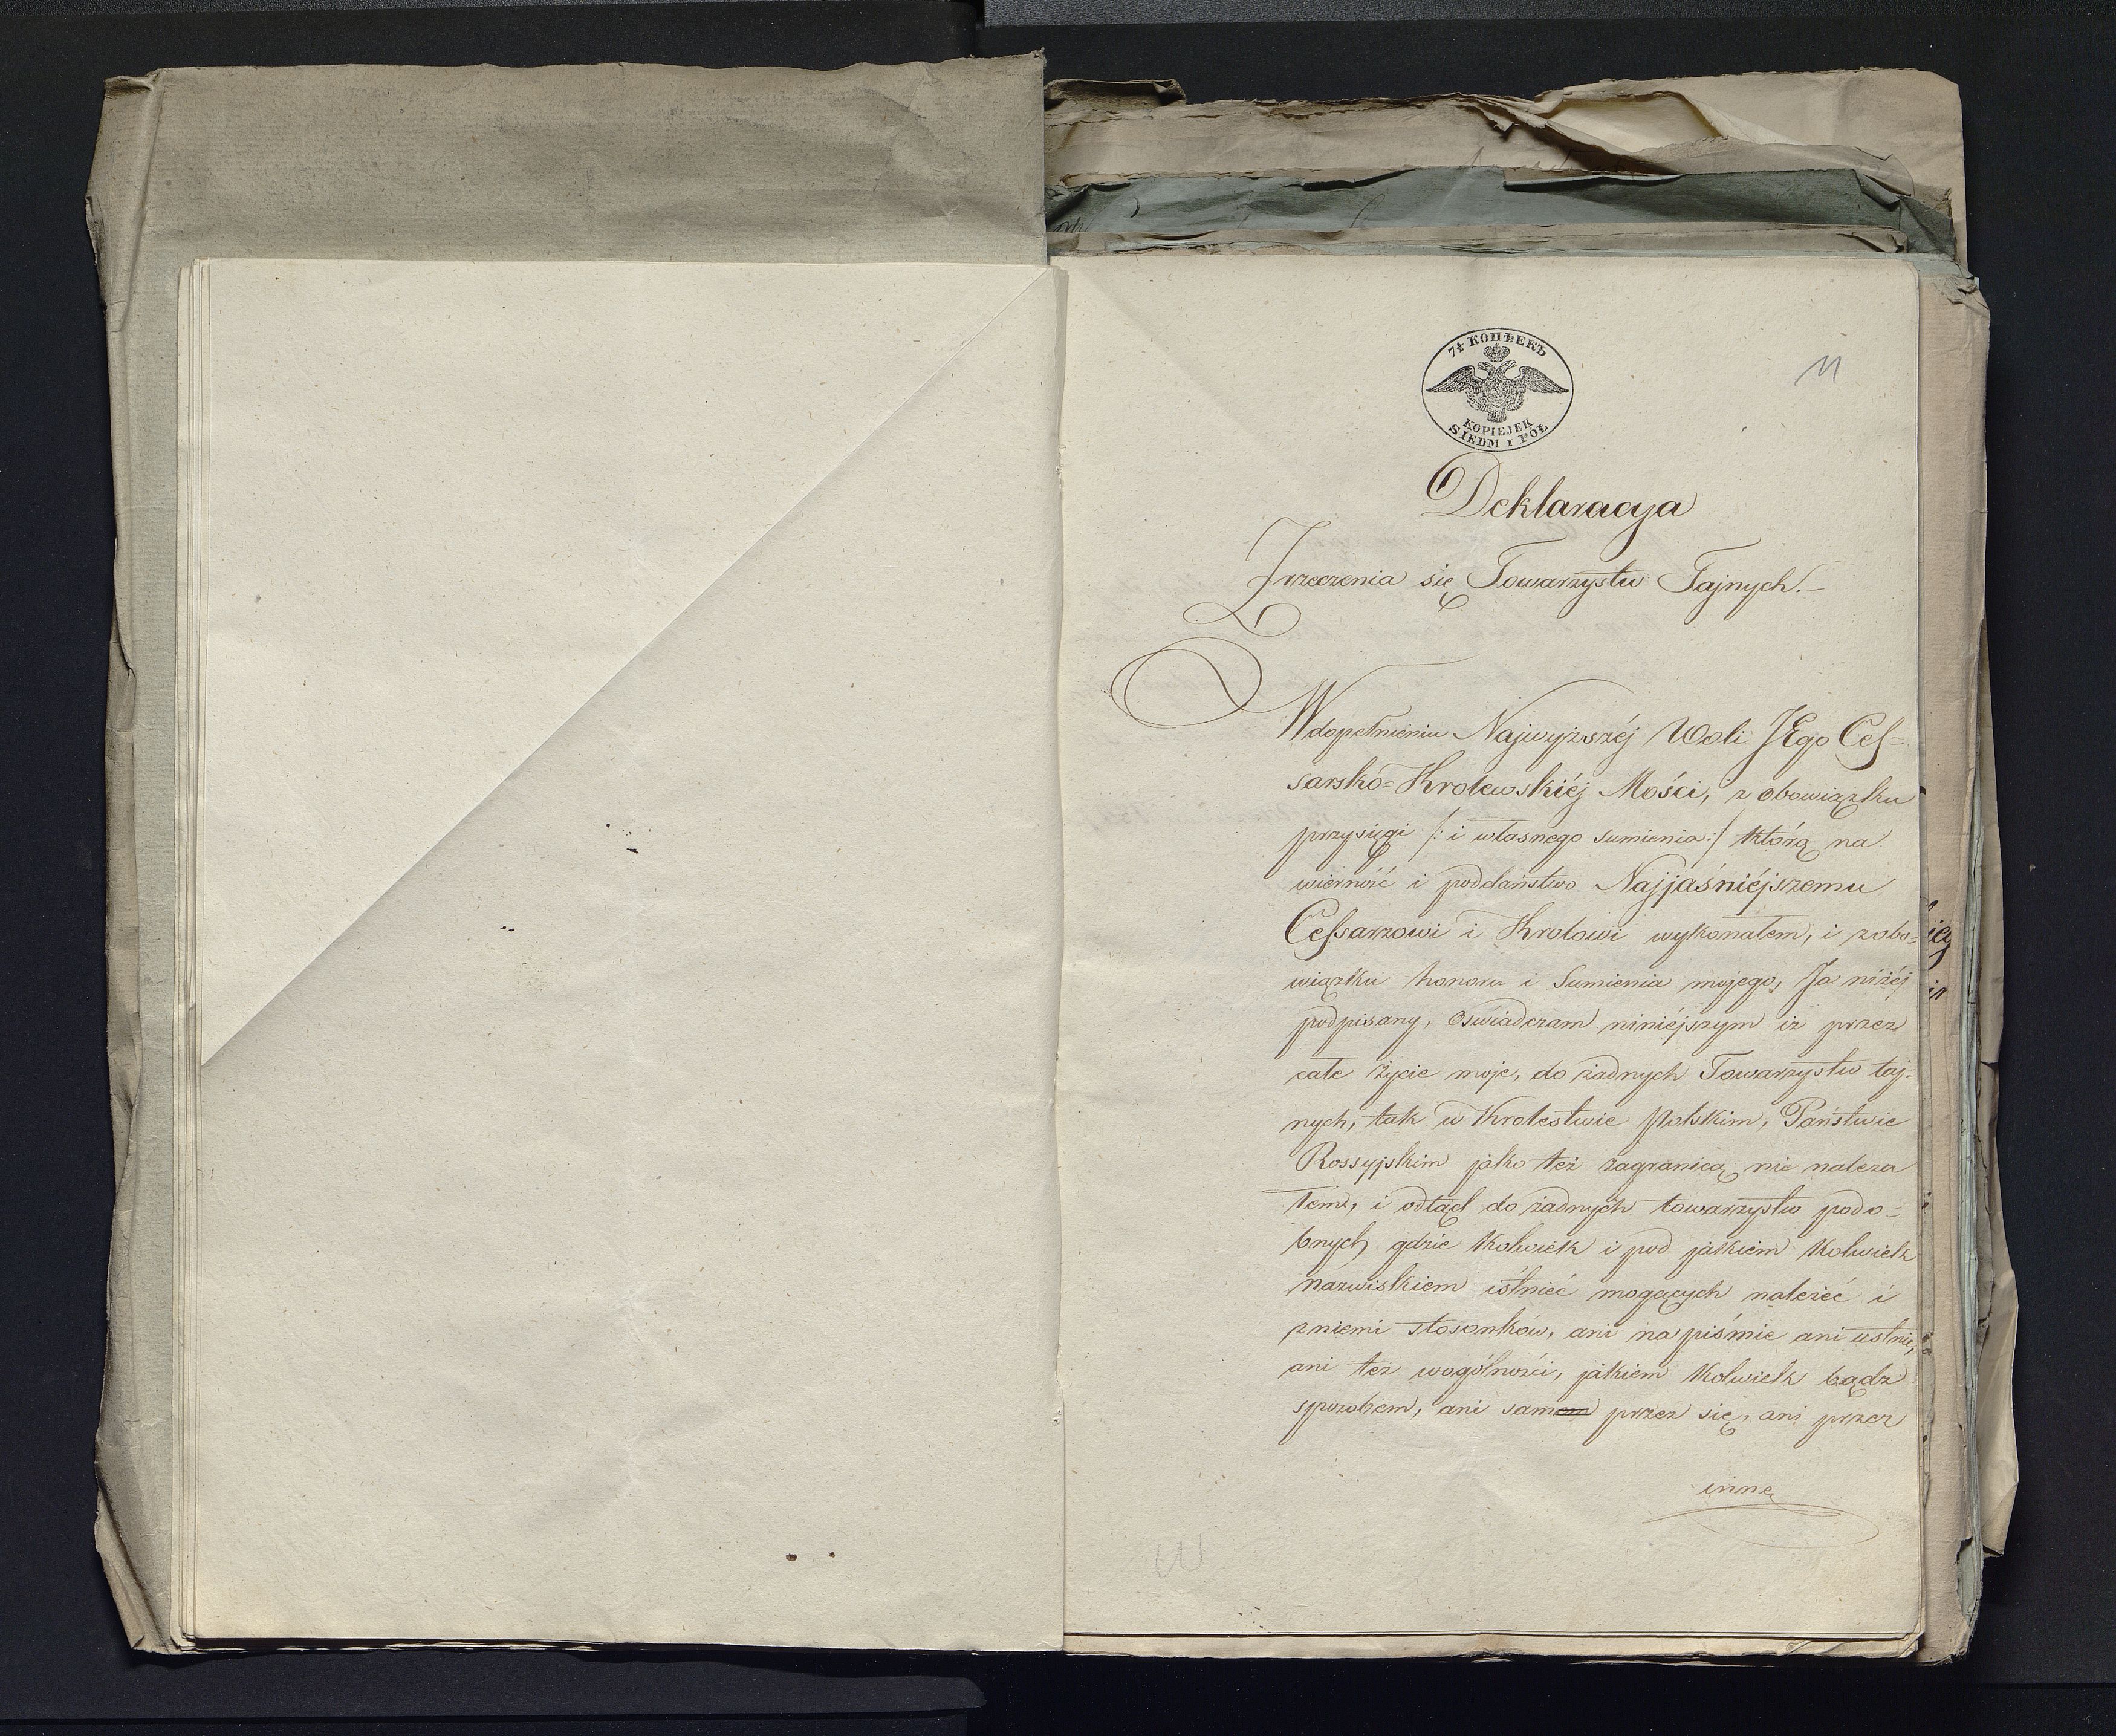 7½ КОПѢЕКЪ
KOPIEJEK
SIEDM I PÓŁ
11
Deklaracya
Zrzeczenia się Towarzystw Tajnych.
W dopełnieniu Najwyższéj Woli JEgo Ces=
sarsko=Krolewskiéj Mości, z obowiązku
przysięgi /: i własnego sumienia :/ którą na
wierność i poddaństwo Najjaśniéjszemu
Cessarzowi i Krolowi wykonałem, i z obo=
wiązku honoru i Sumienia mojego, Ja niżéj
podpisany, oswiadczam niniéjszym iż przez
całe życie moje, do żadnych Towarzystw taj=
nych, tak w Krolestwie Polskim, Państwie
Rossyjskim jako też zagranicą nie należa
łem, i odtąd do żadnych towarzystw podo=
bnych gdzie kolwiek i pod jakiem kolwiek
nazwiskiem istnieć mogących należeć i
z niemi stosonków, ani na piśmie ani ustnie,
ani też wogólności, jakiem kolwiek bądz
sposobem, ani samem przez się, ani przez
inne